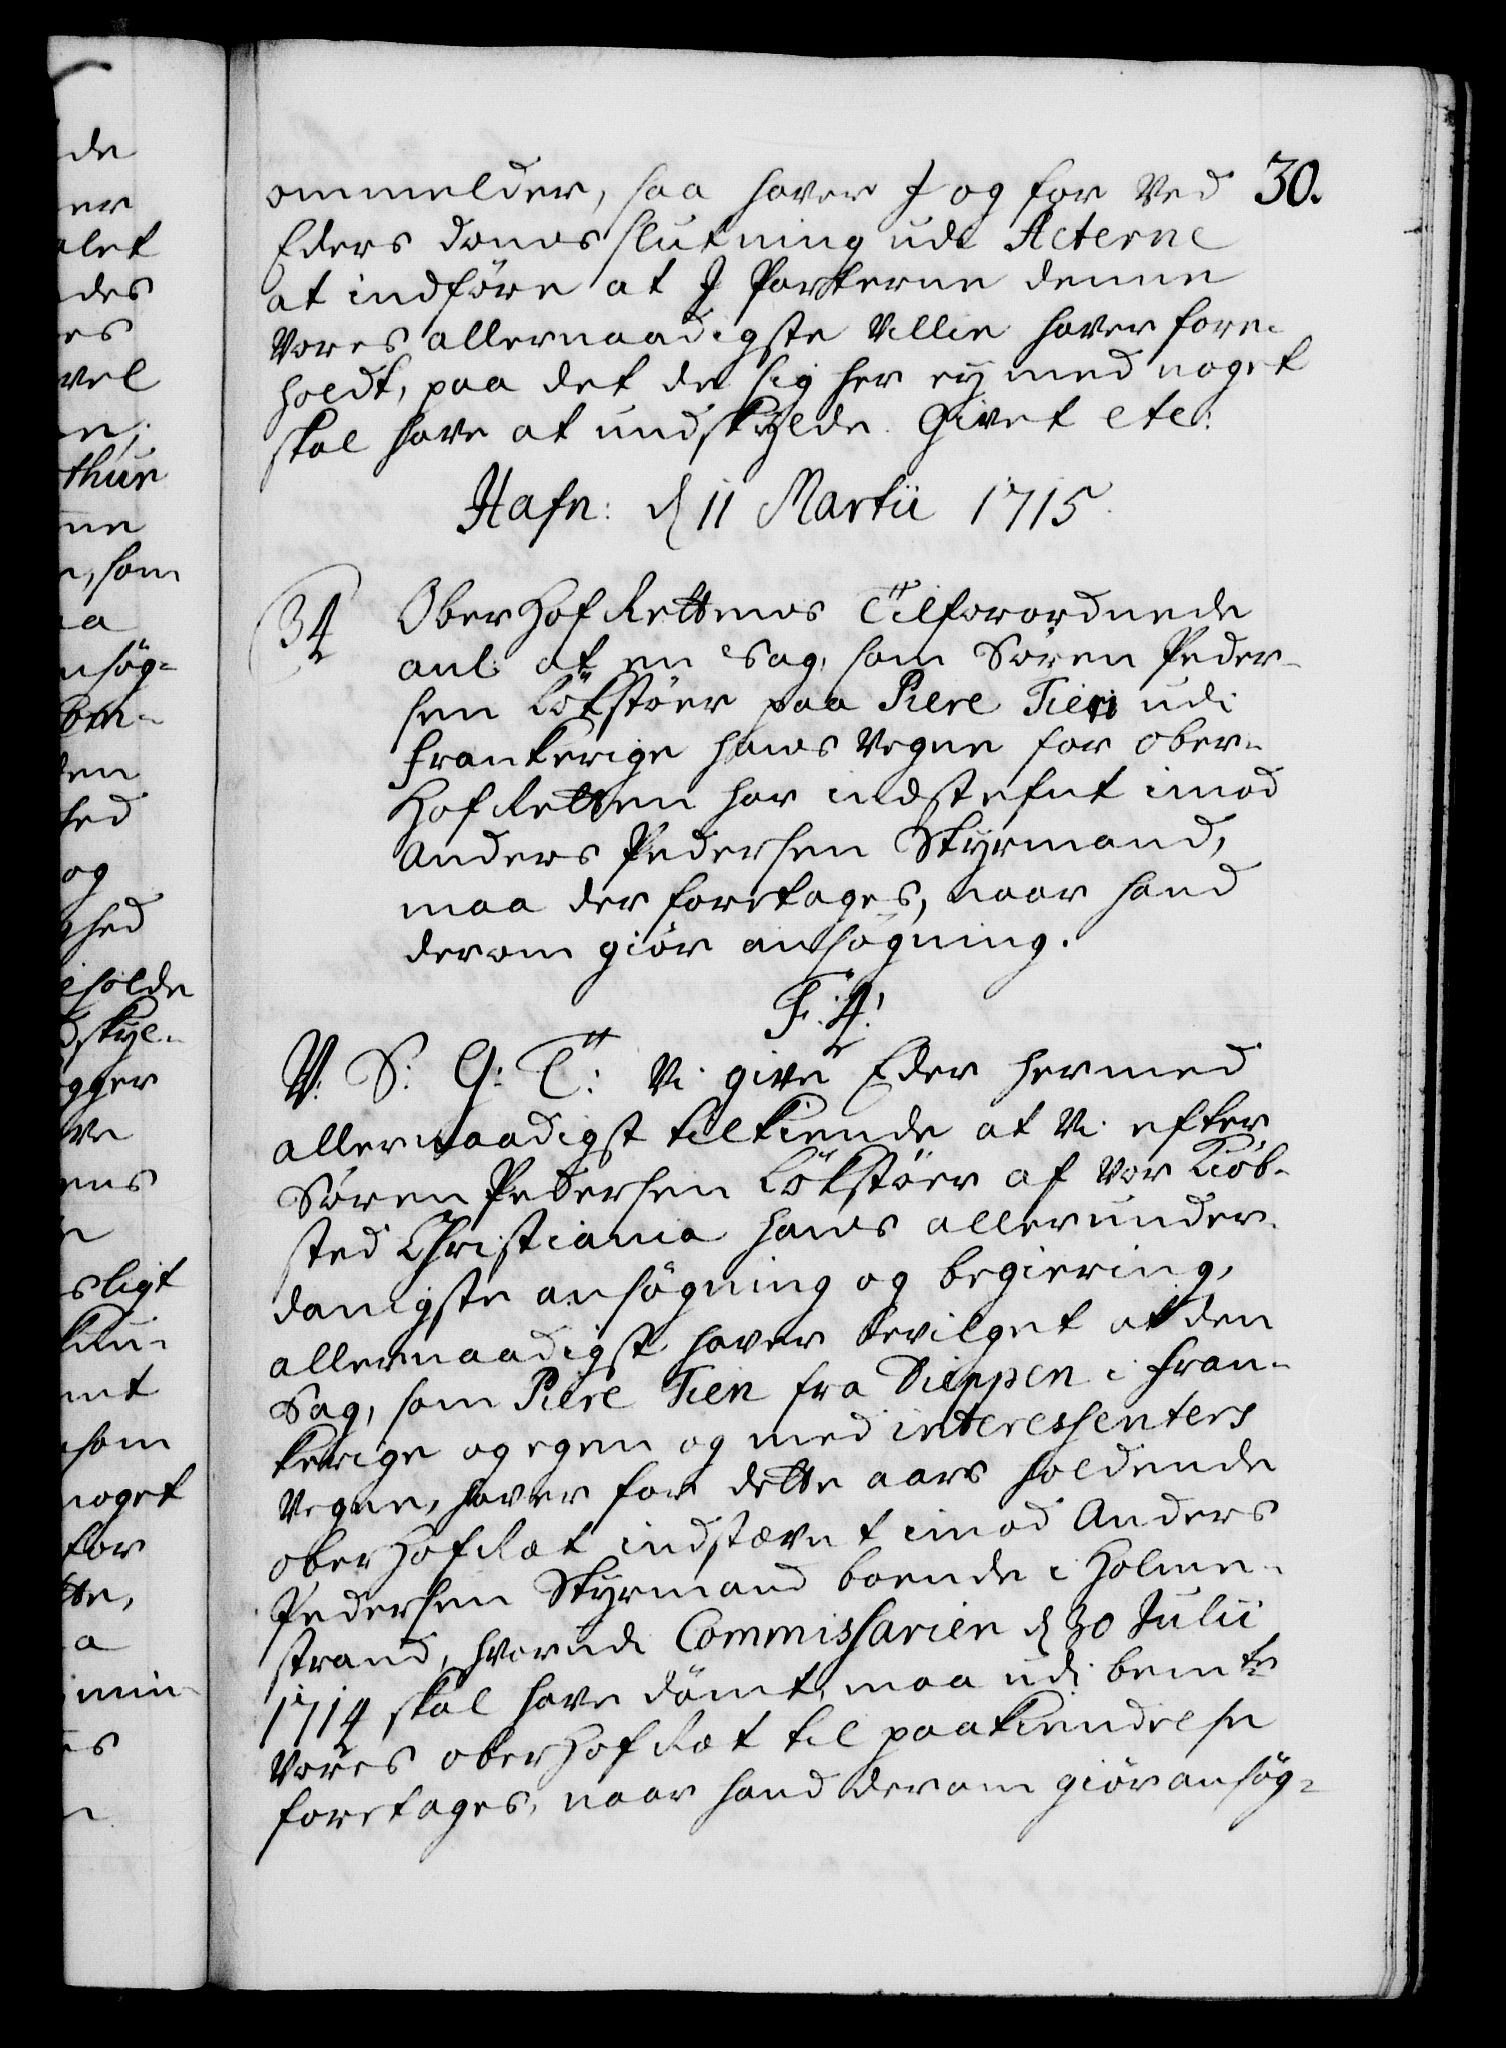 30.
ommelder, saa haver J og for Ved
Eders Domsslutning udi Acterne
at indføre at J Parterne denne
Vores allernaadigste Villie haver fore-
holdt, paa det de sig her ey med noget
skal have at undskylde. Givet etc:
Hafn: d 11 Martii 1715.
34
Ober Hof Rettens Tilforordnede
anl: at en Sag, som Søren Peder-
sen Løkstøer paa Piere Tien udi
Frankerige hans Vegne for Ober-
Hof Retten har indstefnt imod
Anders Pedersen Styrmand,
maa der foretages, naar hand
derom giør ansøgning.
F: 4:
V: S: G: T: Vi give Eder hermed
allernaadigst tilkiende at Vi efter
Søren Pedersen Løkstøer af Vor Kiøb-
sted Christiania hans allerunder-
danigste ansøgning og begiering,
allernaadigst haver bevilget at den
Sag, som Piere Tien fra Dieppen i Fran-
kerige og egen og med interessenters
Vegne, haver for dette aars holdende
Ober Hof Ræt indstævnt imod Anders
Pedersen Styrmand boende i Holme-
strand, hvorudi Commissarier d 30 Julii
1714 skal have dømt, maa udi bemte
Vores Ober Hof Ræt til paakiendelse
foretages, naar hand derom giør ansøg-
de
er
alet
des
es
vel
thur
ne
som
a
søg-
en
hed
og
ghed
eholde
dskyl-
gger
ve
ens
sligt
som
noget
for
tte,
a
min-
es